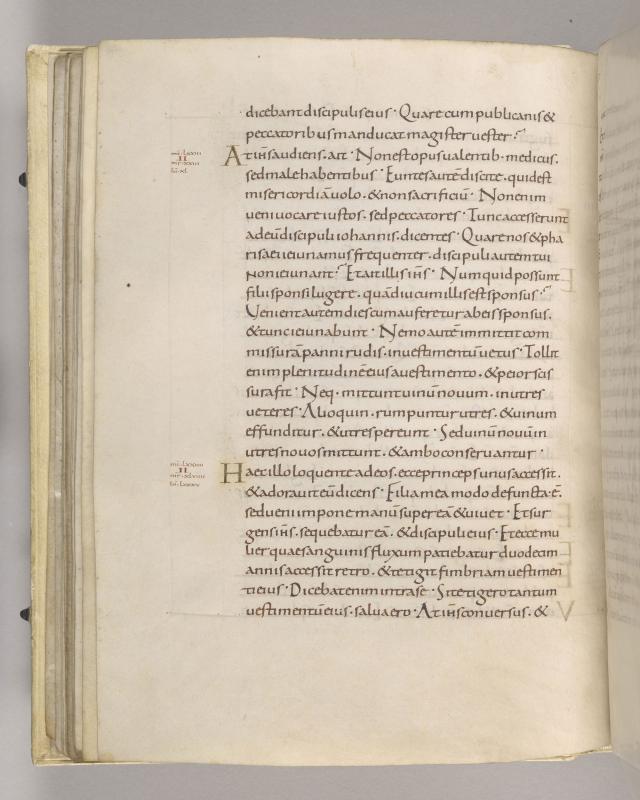 dicebant discipulis eius · Quare cum publicanis &
peccatoribus manducat magister uester ?
At ihs audiens. ait · Non est opus ualentib· medicus.
sed male habentibus · Euntes autē discite. quid est
misericordiā uolo. & non sacrificiū · Non enim
ueni uocare iustos. sed peccatores · Tunc accesserunt
ad eū discipuli iohannis. dicentes · Quare nos & pha
risaei ieiunamus frequenter. discipuli autem tui
non ieiunant ? Et ait illis ihs · Numquid possunt
filii sponsi lugere. quādiu cum illis est sponsus ?
Venient autem dies cum auferetur ab eis sponsus.
& tunc ieiunabunt · Nemo autē immittit com
missurā panni rudis. in uestimentū uetus · Tollit
enim plenitudinē eius a uestimento. & peior scis
sura fit · Neq· mittunt uinū nouum. in utres
ueteres · Alioquin. rumpuntur utres. & uinum
effunditur. & utres pereunt · Sed uinū nouū in
utres nouos mittunt. & ambo conseruantur ·
Haec illo loquente ad eos. ecce princeps unus accessit.
& adorauit eū dicens · Filia mea modo defuncta ē.
sed ueni impone manū super eā & uiuet · Et sur
gens ihs. sequebatur eā. & discipuli eius · Et ecce mu
lier quae sanguinis fluxum patiebatur duodecim
annis accessit retro. & tetigit fimbriam uestimen
ti eius · Dicebat enim intra se · Si tetigero tantum
uestimentū eius. salua ero · At ihs conuersus. &